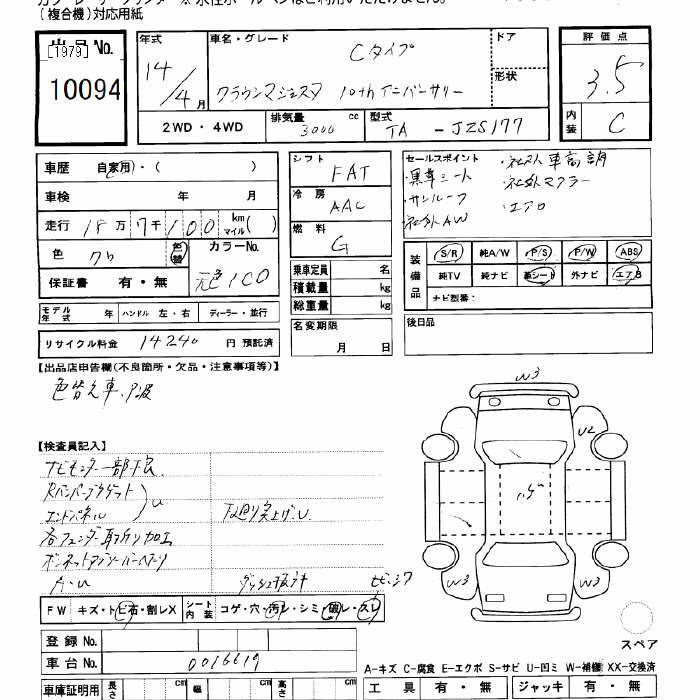 (複合機)対応用紙
[1979]
出品No.
10094
年式
14/4月
車名・グレード
Cタイプ
クラウンマジェスタ 10thアニバーサリー
ドア
形状
評価点
3.5
内装
C
2WD・4WD
排気量 3000 cc
型式 TA - JZS177
車歴 自家用・( )
車検 年 月
走行 18万7千100 km マイル( )
色 クロ 色替
カラーNo.
元色1C0
保証書 有・無
シフト FAT
冷房 AAC
燃料 G
乗車定員 名
積載量 kg
総重量 kg
セールスポイント
・社外車高調
・黒革シート
・社外マフラー
・サンルーフ
・エアロ
・社外AW
装備品
S/R 純A/W P/S P/W ABS
純TV 純ナビ 革シート 外ナビ エアB
ナビ型番:
モデル年式 年 ハンドル 左・右 ディーラー・並行
名変期限
月 日
後日品
リサイクル料金 14240 円 預託済
【出品店申告欄(不良箇所・欠品・注意事項等)】
色替え車
【検査員記入】
ナビモニター一部不良
エンドパネル
U
各フェンダー
下廻り突上げU
A・U
W3
U2
W3
W3
FW キズ・ト ビ石・割レX
シート内装 コゲ・穴・汚レ・シミ・破レ・スレ
登録No.
車台No. 0016619
スペア
A-キズ C-腐食 E-エクボ S-サビ U-凹ミ W-補修 XX-交換済
車庫証明用 長さ cm 幅 cm 高さ cm
工具 有・無 ジャッキ 有・無